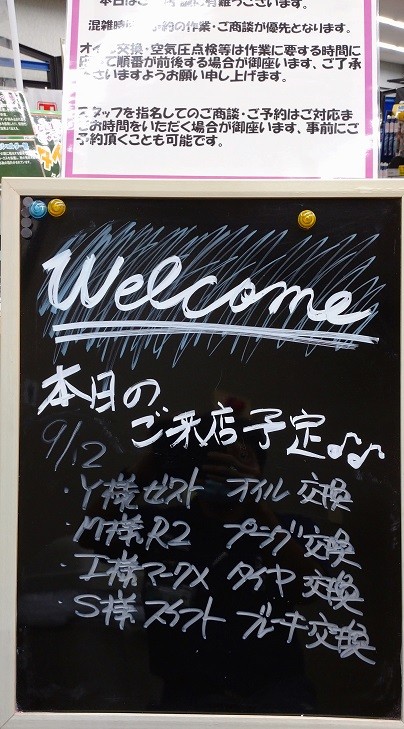 混雑時
予約の作業・ご商談が優先となります。
オイル交換・空気圧点検等は作業に要する時間に
順番が前後する場合が御座います、ご了承
ざいますようお願い申し上げます。
スタッフを指名してのご商談・ご予約はご対応ま
お時間をいただく場合が御座います、事前にご
予約頂くことも可能です。
Welcome
本日の
ご来店予定♪♪
9/12
・Y様ゼスト オイル交換
・M様R2 プラグ交換
・I様マークX タイヤ交換
・S様スイフト ブレーキ交換